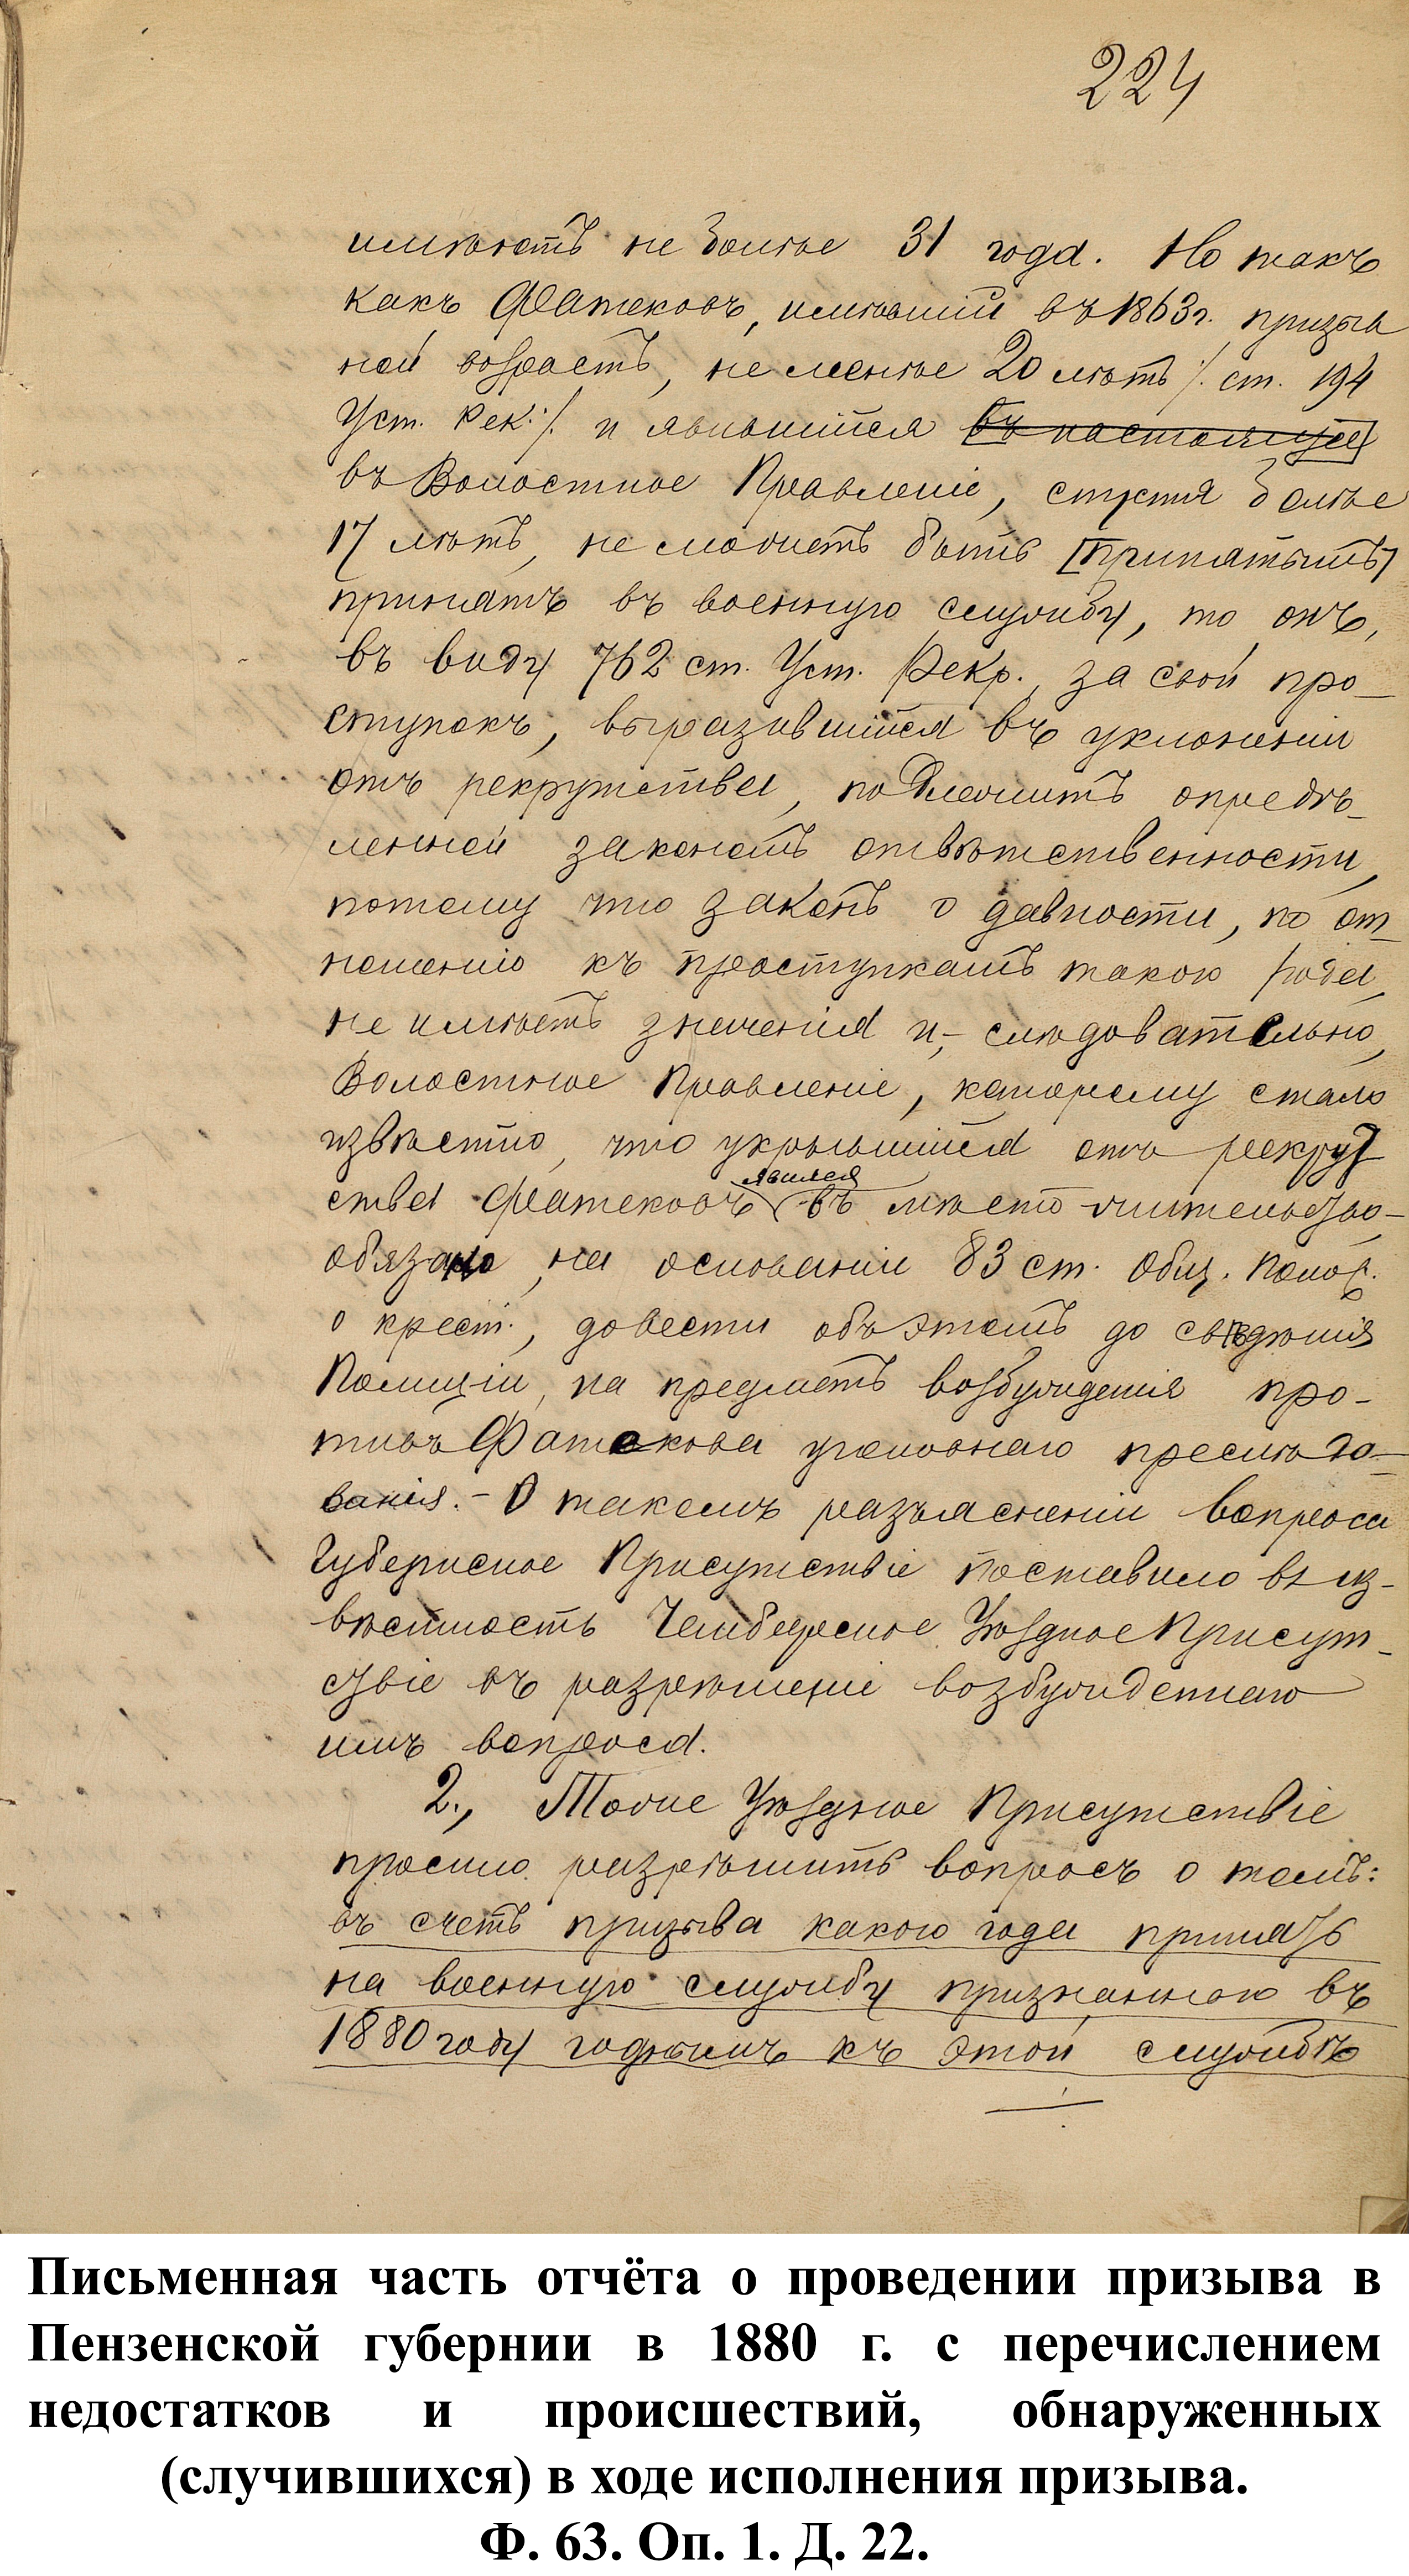 224
имѣютъ не болѣе 31 года. Но такъ
какъ Фатековъ, имѣвшій въ 1863 г. призыв
ной возрастъ, не менѣе 20 лѣтъ /. ст. 194
Уст. Рек: /. и явившійся въ настоящее
въ Волостное Правленіе, спустя болѣе
17 лѣтъ, не можетъ быть [принятымъ]
принятъ въ военную службу, то онъ,
въ виду 762 ст. Уст. Рекр., за свой про-
ступокъ, выразившійся въ уклоненіи
отъ рекрутства, подлежитъ опредѣ-
ленной закономъ отвѣтственности,
потому что законъ о давности, по от-
ношенію къ проступкамъ такого рода,
не имѣетъ значенія и,- слѣдовательно,
Волостное Правленіе, которому стало
извѣстно, что укрывшійся отъ рекрут
явился
ства Фатековъ въ мѣсто жительства-
обязано, на основаніи 83 ст. Общ. Полож.
о крест., довести объ этомъ до свѣдѣнія
Полиціи, на предметъ возбужденія про-
тивъ Фатекова уголовнаго преслѣдо-
ванія. - О такомъ разъясненіи вопроса
Губернское Присутствіе поставило въ из-
вѣстность Чембарское Уѣздное Присут-
ствіе въ разрѣшеніе возбужденнаго
имъ вопроса.
2., Тоже Уѣздное Присутствіе
просило разрѣшить вопросъ о томъ:
въ счетъ призыва какого года принять
на военную службу признаннаго въ
1880 году годнымъ къ этой службѣ
Письменная часть отчёта о проведении призыва в
Пензенской губернии в 1880 г. с перечислением
недостатков и происшествий, обнаруженных
(случившихся) в ходе исполнения призыва.
Ф. 63. Оп. 1. Д. 22.